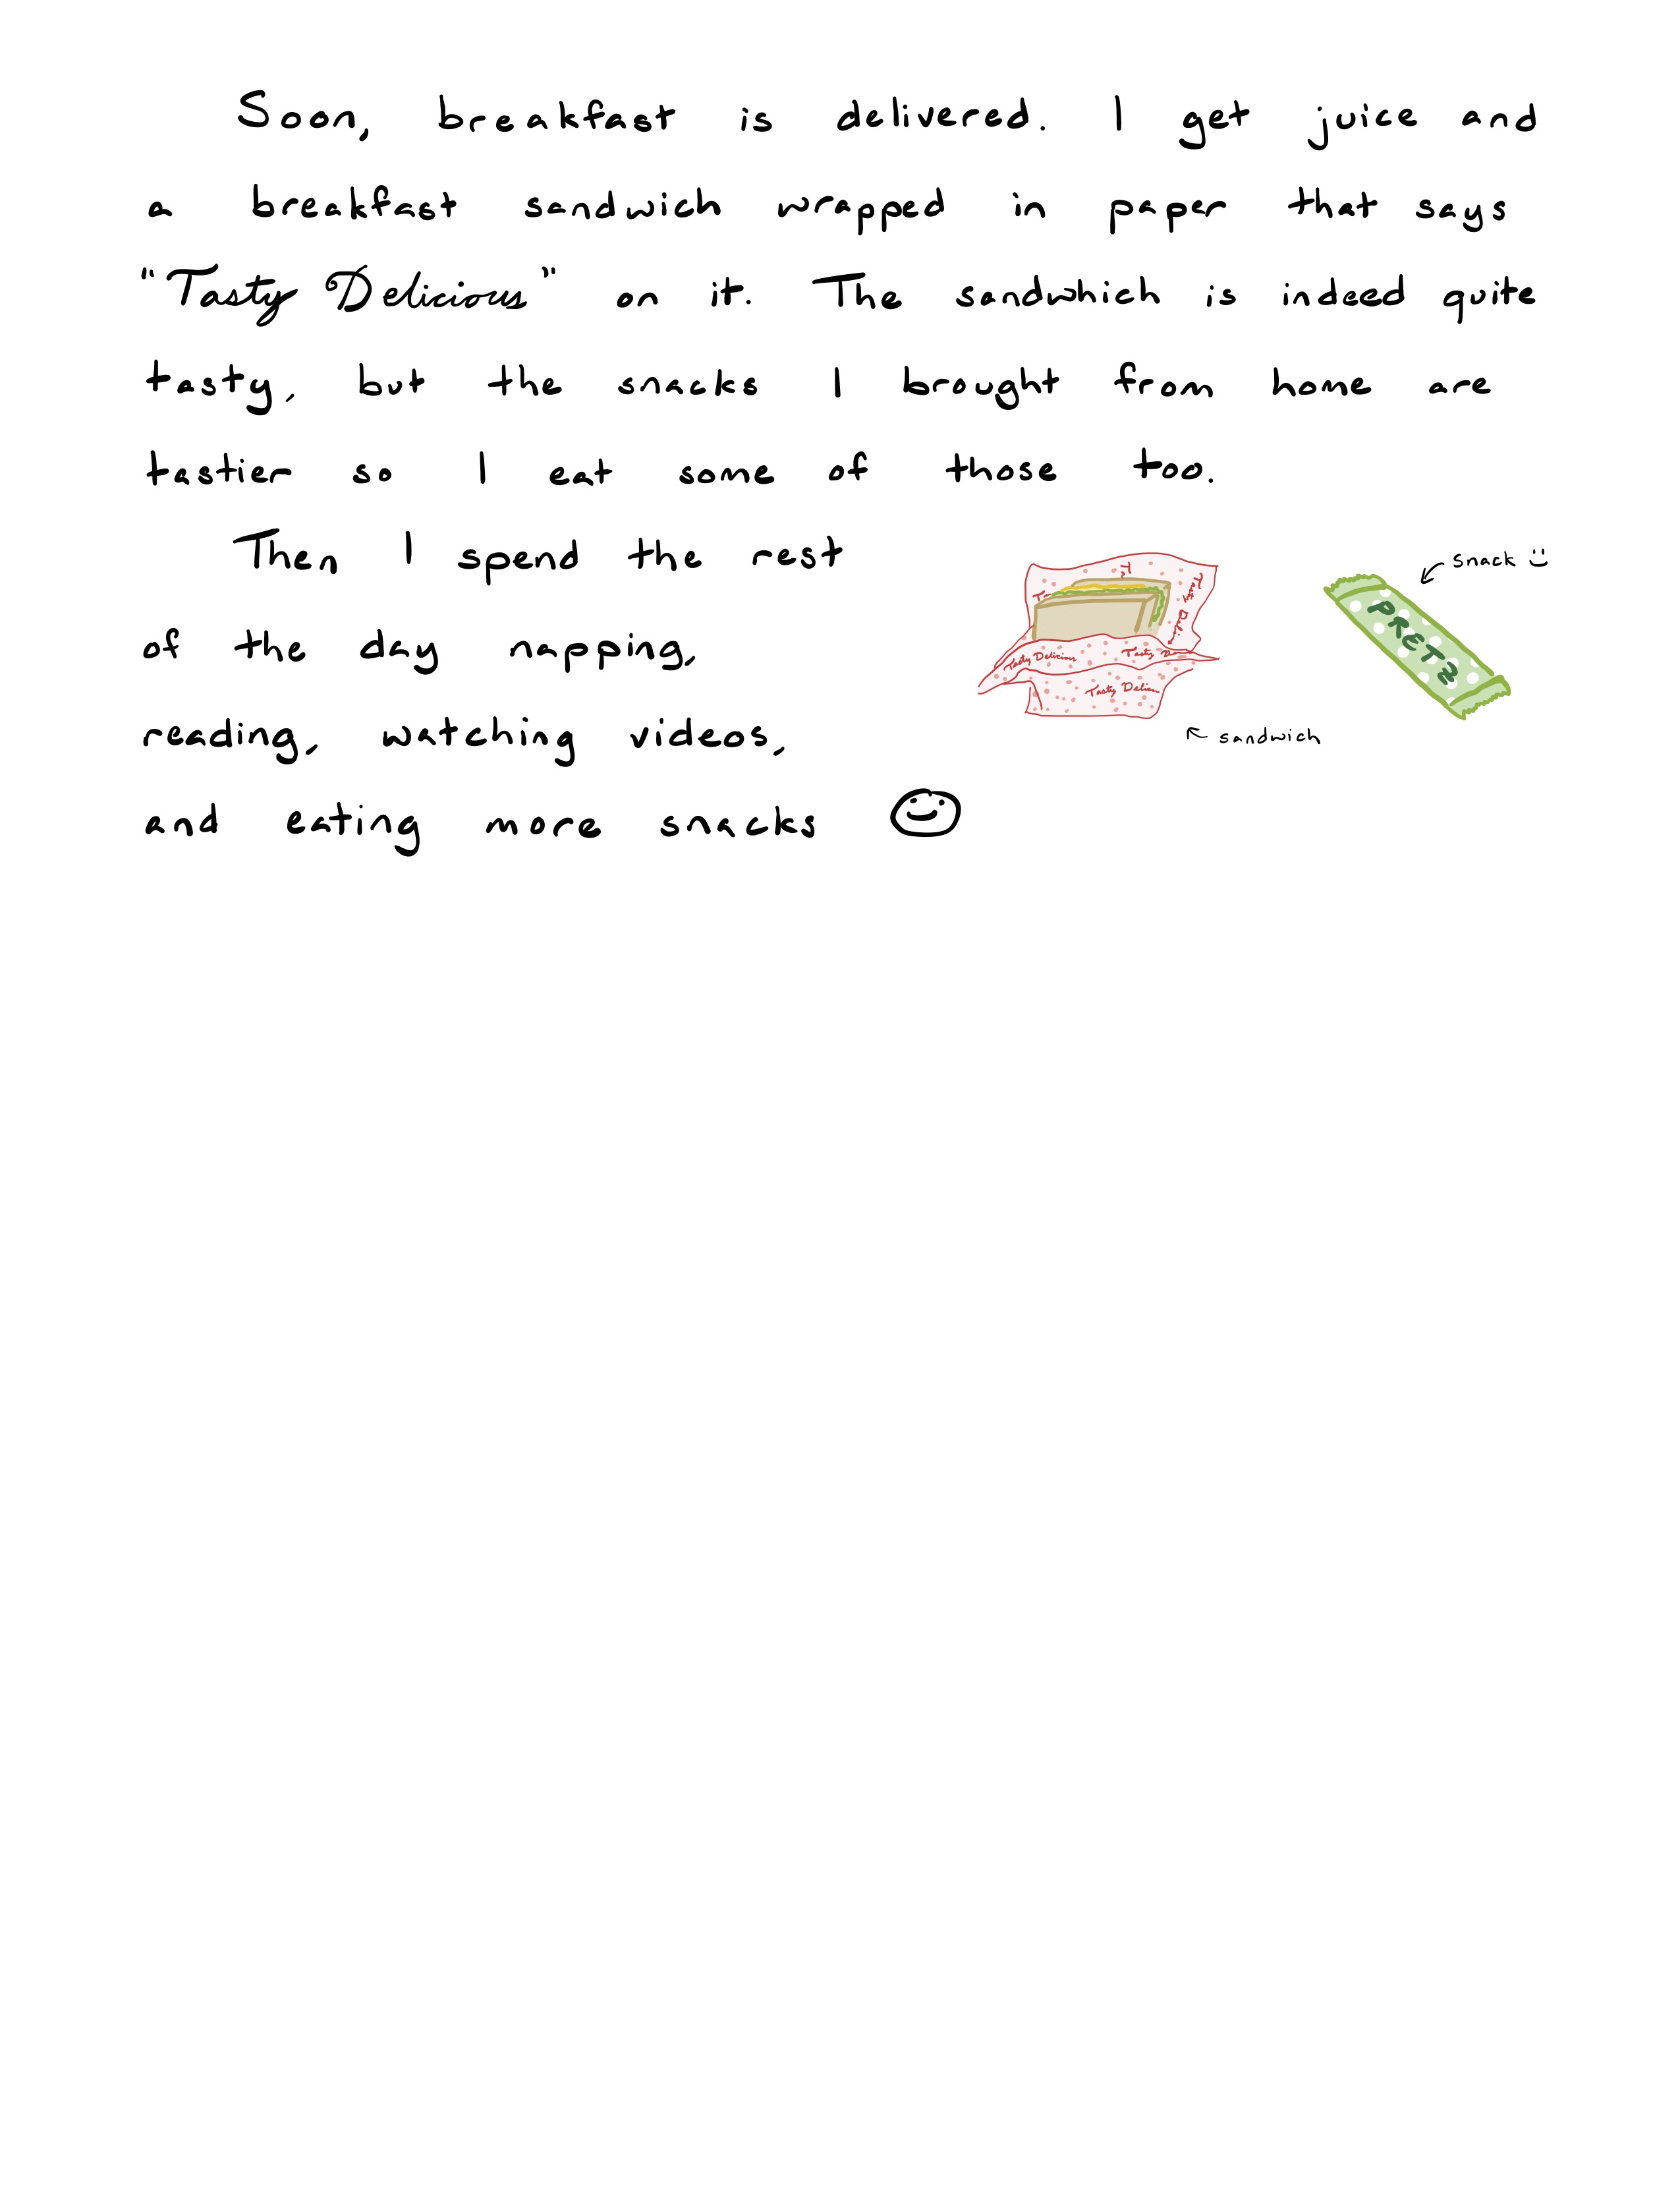 Soon, breakfast is delivered. I get juice and
a breakfast sandwich wrapped in paper that says
"Tasty Delicious" on it. The sandwhich is indeed quite
tasty, but the snacks I brought from home are
tastier so I eat some of those too.
Then I spend the rest
of the day napping,
reading, watching videos,
and eating more snacks
snack
PRETZ
Ta
Ta
Tasty Delici
Tasty Delicious
Tasty De
Tasty Delici
sandwich